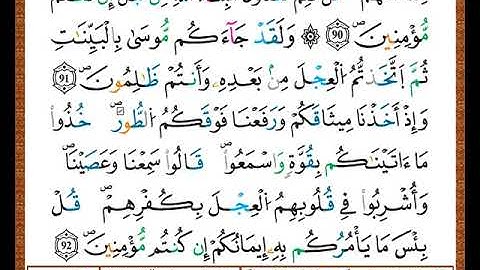 مُّؤْمِنِينَۖ 90 ۞ وَلَقَدْ جَآءَكُم مُّوسَىٰ بِالْبَيِّنَاتِ
ثُمَّ اَتَّخَذتُّمُ الْعِجْلَ مِنۢ بَعْدِهِۦ وَأَنتُمْ ظَالِمُونَۖ 91
وَإِذْ أَخَذْنَا مِيثَاقَكُمْ وَرَفَعْنَا فَوْقَكُمُ الطُّورَۖ خُذُوا
مَا ءَاتَيْنَاكُم بِقُوَّةٍ وَاسْمَعُواۖ قَالُوا سَمِعْنَا وَعَصَيْنَاۖ
وَأُشْرِبُوا فِي قُلُوبِهِمُ الْعِجْلَ بِكُفْرِهِمْۖ قُلْ
بِئْسَ مَا يَأْمُرُكُم بِهِۦ إِيمَانُكُمْ إِن كُنتُم مُّؤْمِنِينَۖ 92